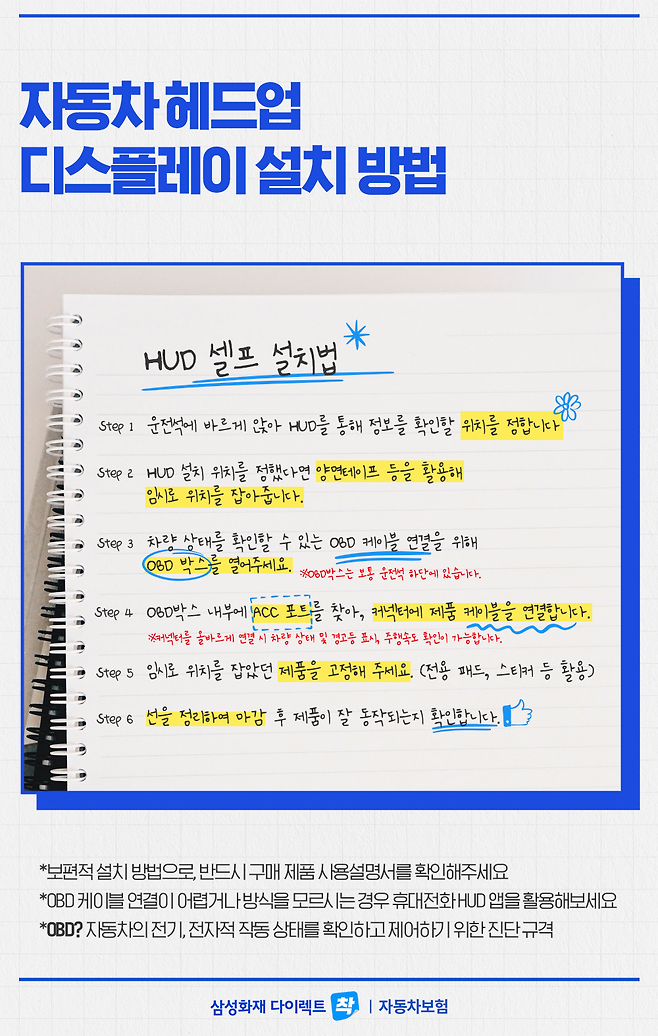 자동차 헤드업
디스플레이 설치 방법
HUD 셀프 설치법
Step 1 운전석에 바르게 앉아 HUD를 통해 정보를 확인할 위치를 정합니다
Step 2 HUD 설치 위치를 정했다면 양면테이프 등을 활용해
임시로 위치를 잡아줍니다.
Step 3 차량 상태를 확인할 수 있는 OBD 케이블 연결을 위해
OBD 박스를 열어주세요. ※OBD박스는 보통 운전석 하단에 있습니다.
Step 4 OBD박스 내부에 ACC 포트를 찾아, 커넥터에 제품 케이블을 연결합니다.
※커넥터를 올바르게 연결 시 차량 상태 및 경고등 표시, 주행속도 확인이 가능합니다.
Step 5 임시로 위치를 잡았던 제품을 고정해 주세요. (전용 패드, 스티커 등 활용)
Step 6 선을 정리하여 마감 후 제품이 잘 동작되는지 확인합니다.
*보편적 설치 방법으로, 반드시 구매 제품 사용설명서를 확인해주세요
*OBD 케이블 연결이 어렵거나 방식을 모르시는 경우 휴대전화 HUD 앱을 활용해보세요
*OBD? 자동차의 전기, 전자적 작동 상태를 확인하고 제어하기 위한 진단 규격
삼성화재 다이렉트 착 | 자동차보험